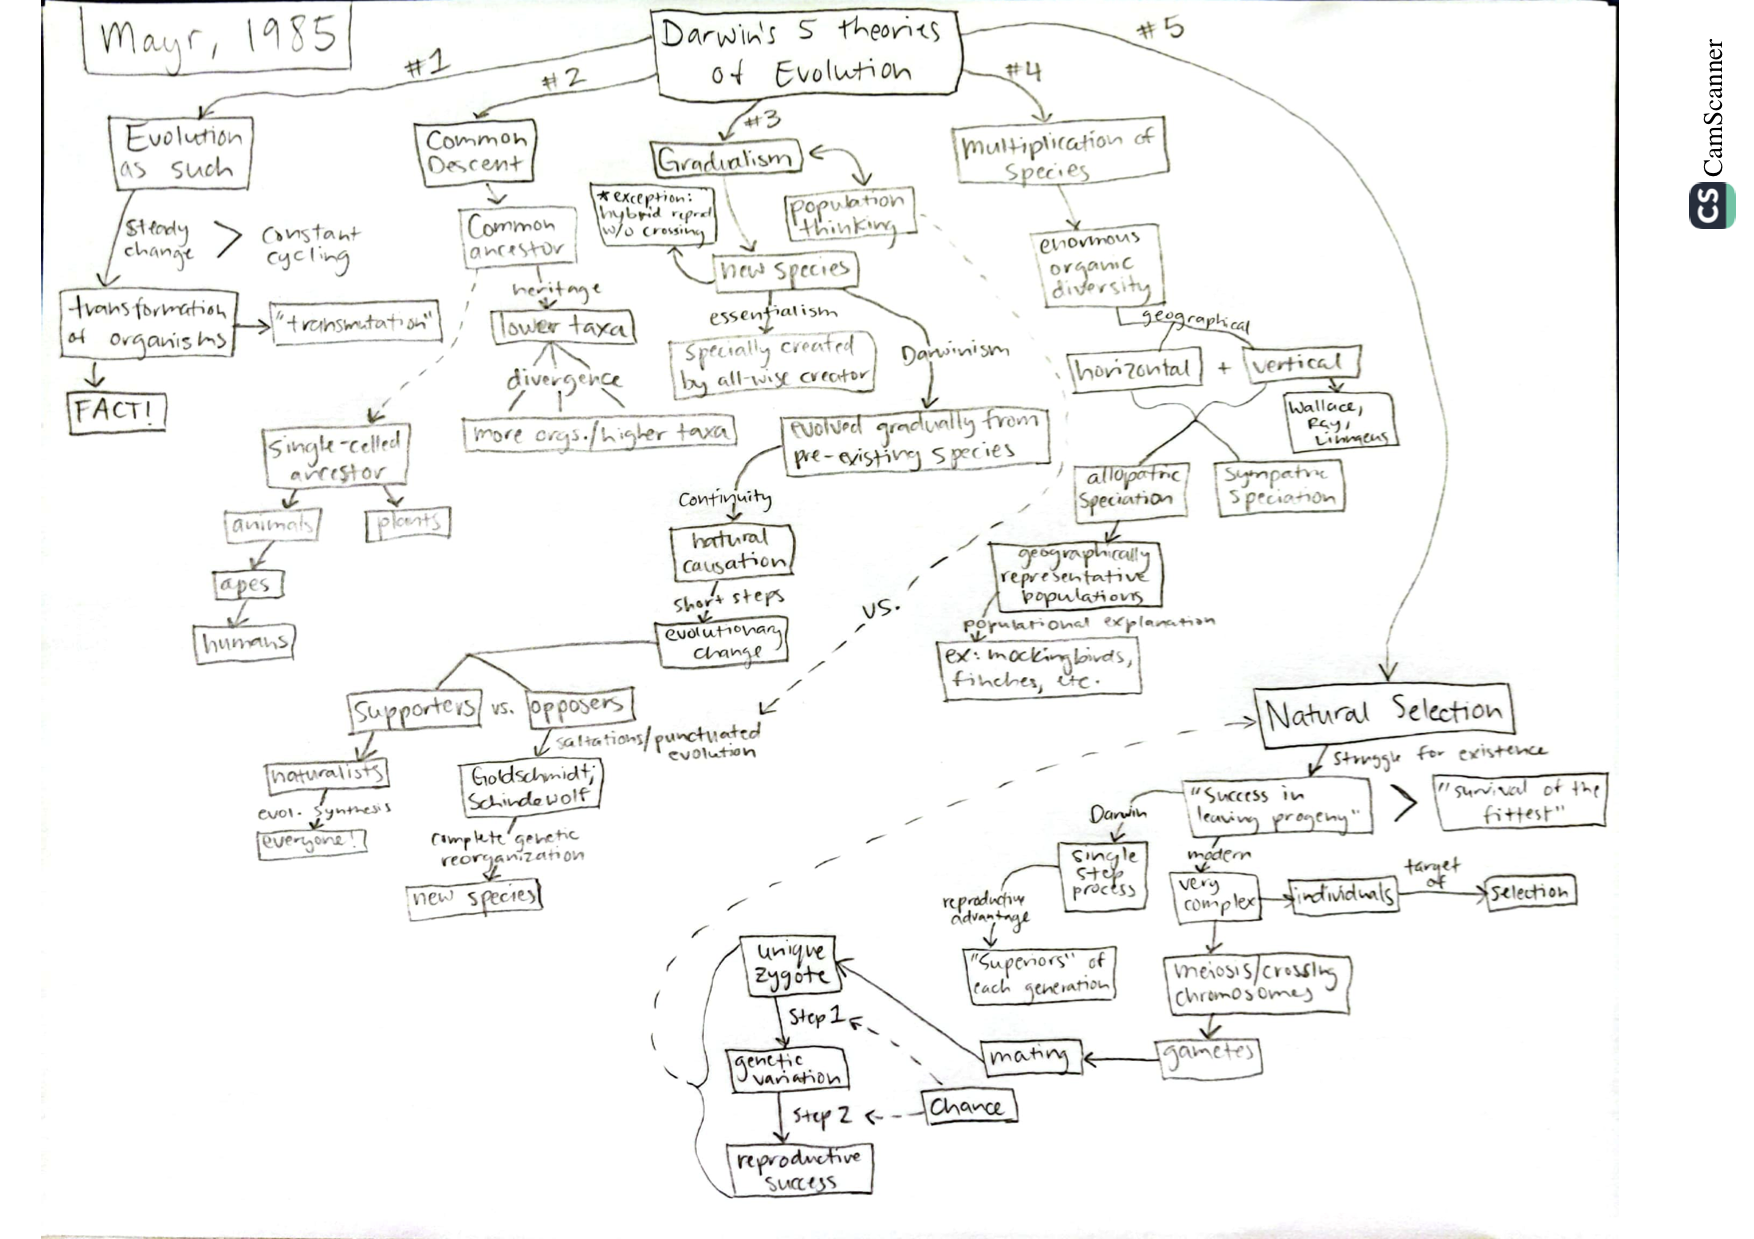 Mayr, 1985
Darwin's 5 theories
of Evolution
#1
#2
#3
#4
#5
Evolution
as such
Steady
change
>
constant
cycling
transformation
of organisms
"transmutation"
FACT!
Common
Descent
Common
ancestor
heritage
lower taxa
divergence
more orgs./higher taxa
single-celled
ancestor
animals
plants
apes
humans
Gradualism
population
thinking
*exception:
hybrid reprod
w/o crossing
new species
essentialism
specially created
by all-wise creator
Darwinism
evolved gradually from
pre-existing species
Continuity
natural
causation
short steps
evolutionary
change
supporters
vs.
opposers
naturalists
evol. synthesis
everyone!
saltations/punctuated
evolution
Goldschmidt;
Schindewolf
complete genetic
reorganization
new species
vs.
multiplication of
species
enormous
organic
diversity
geographical
horizontal
+
vertical
Wallace,
Ray,
Linnaeus
allopatric
speciation
sympatric
speciation
geographically
representative
populations
populational explanation
ex: mockingbirds,
finches, etc.
Natural Selection
struggle for existence
"success in
leaving progeny"
>
"survival of the
fittest"
Darwin
single
step
process
reproductive
advantage
"superiors" of
each generation
modern
very
complex
individuals
target
of
selection
meiosis/crossing
chromosomes
gametes
mating
unique
zygote
Step 1
genetic
variation
Step 2
Chance
reproductive
success
CS CamScanner